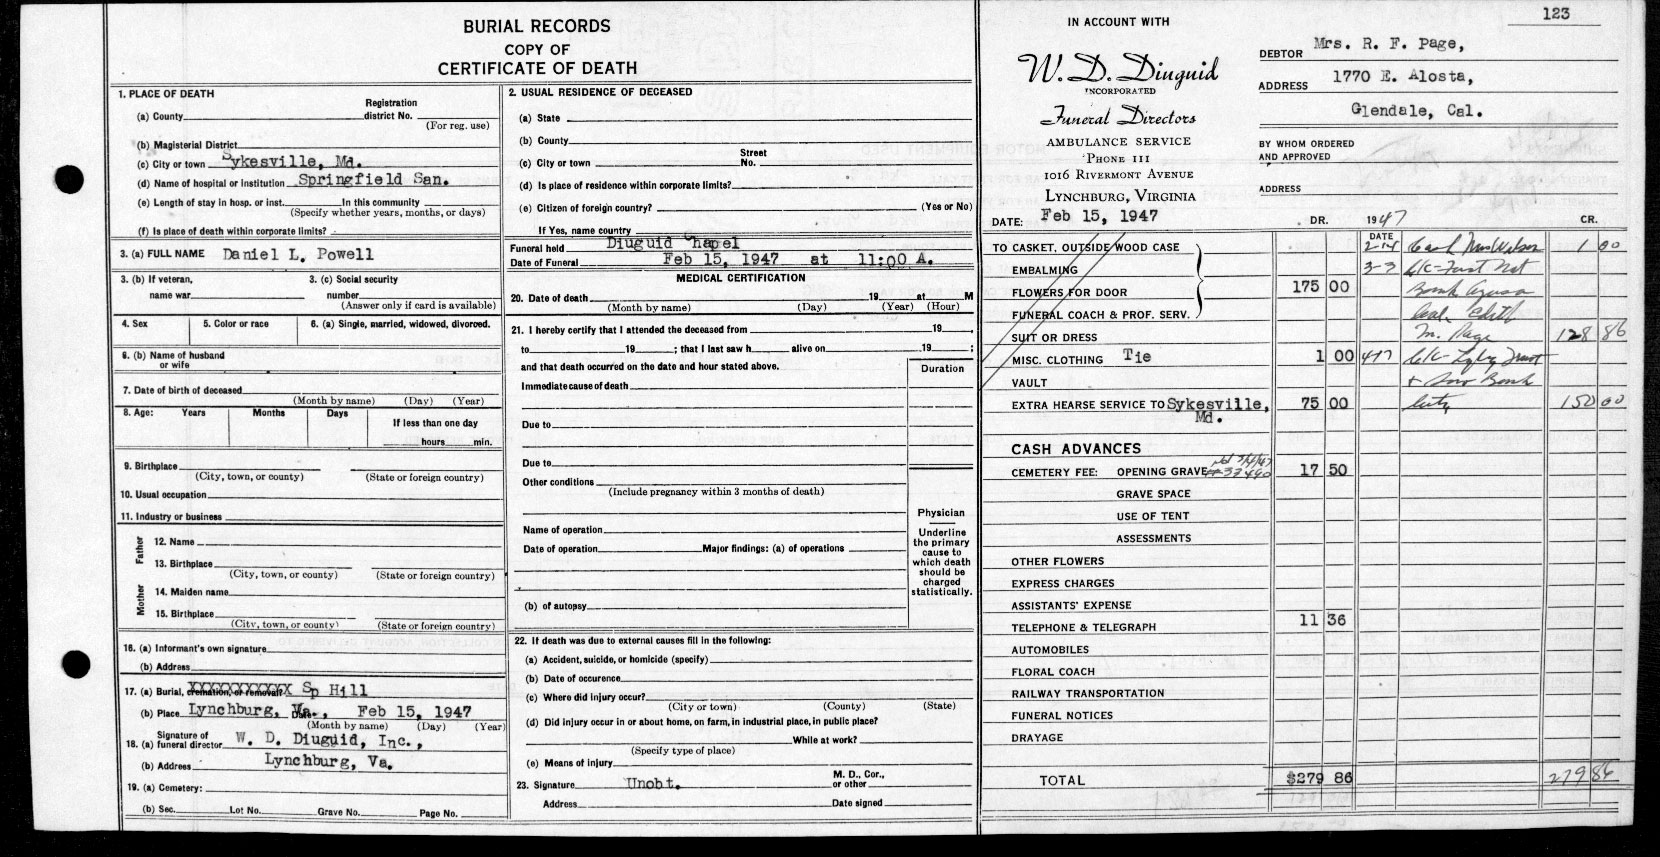 BURIAL RECORDS
COPY OF
CERTIFICATE OF DEATH
1. PLACE OF DEATH
(a) County Registration district No.
(For reg. use)
(b) Magisterial District
(c) City or town Sykesville, Md.
(d) Name of hospital or institution Springfield San.
(e) Length of stay in hosp. or inst. In this community
(Specify whether years, months, or days)
(f) Is place of death within corporate limits?
3. (a) FULL NAME Daniel L. Powell
3. (b) If veteran, name war 3. (c) Social security number
(Answer only if card is available)
4. Sex 5. Color or race 6. (a) Single, married, widowed, divorced.
6. (b) Name of husband or wife
7. Date of birth of deceased
(Month by name) (Day) (Year)
8. Age: Years Months Days If less than one day
hours min.
9. Birthplace
(City, town, or county) (State or foreign country)
10. Usual occupation
11. Industry or business
Father
12. Name
13. Birthplace
(City, town, or county) (State or foreign country)
Mother
14. Maiden name
15. Birthplace
(City, town, or county) (State or foreign country)
16. (a) Informant's own signature
(b) Address
17. (a) Burial, cremation, or removal? XXXXXXXXXXXX Sp Hill
(b) Place Lynchburg, Va., Feb 15, 1947
(Month by name) (Day) (Year)
18. (a) Signature of funeral director W. D. Diuguid, Inc.,
(b) Address Lynchburg, Va.
19. (a) Cemetery:
(b) Sec. Lot No. Grave No. Page No.
2. USUAL RESIDENCE OF DECEASED
(a) State
(b) County
(c) City or town Street No.
(d) Is place of residence within corporate limits?
(e) Citizen of foreign country? (Yes or No)
If Yes, name country
Funeral held Diuguid Chapel
Date of Funeral Feb 15, 1947 at 11:00 A.
MEDICAL CERTIFICATION
20. Date of death 19 at M
(Month by name) (Day) (Year) (Hour)
21. I hereby certify that I attended the deceased from 19 ,
to 19 ; that I last saw h alive on 19 ;
and that death occurred on the date and hour stated above.
Duration
Immediate cause of death
Due to
Due to
Other conditions
(Include pregnancy within 3 months of death)
Name of operation
Date of operation Major findings: (a) of operations
(b) of autopsy
Physician
Underline the primary cause to which death should be charged statistically.
22. If death was due to external causes fill in the following:
(a) Accident, suicide, or homicide (specify)
(b) Date of occurence
(c) Where did injury occur?
(City or town) (County) (State)
(d) Did injury occur in or about home, on farm, in industrial place, in public place?
While at work?
(Specify type of place)
(e) Means of injury
23. Signature Unobt. M. D., Cor., or other
Address Date signed
123
IN ACCOUNT WITH
W. D. Diuguid
INCORPORATED
Funeral Directors
AMBULANCE SERVICE
PHONE 111
1016 RIVERMONT AVENUE
LYNCHBURG, VIRGINIA
DEBTOR Mrs. R. F. Page,
ADDRESS 1770 E. Alosta,
Glendale, Cal.
BY WHOM ORDERED AND APPROVED
ADDRESS
DATE: Feb 15, 1947 DR. 1947 CR.
DATE
TO CASKET, OUTSIDE WOOD CASE 2-14 Cash Mrs Wilson 1 00
EMBALMING 3-3 C/C- First Nat
FLOWERS FOR DOOR 175 00 Bank Azusa
FUNERAL COACH & PROF. SERV. Cal. Edith
SUIT OR DRESS M. Page 128 86
MISC. CLOTHING Tie 1 00 4-17 C/C- Lybg Trust
VAULT + Sav Bank
EXTRA HEARSE SERVICE TO Sykesville, Md. 75 00 City 150 00
CASH ADVANCES
CEMETERY FEE: OPENING GRAVE #37490 17 50
GRAVE SPACE
USE OF TENT
ASSESSMENTS
OTHER FLOWERS
EXPRESS CHARGES
ASSISTANTS' EXPENSE
TELEPHONE & TELEGRAPH 11 36
AUTOMOBILES
FLORAL COACH
RAILWAY TRANSPORTATION
FUNERAL NOTICES
DRAYAGE
TOTAL $279 86 279 86